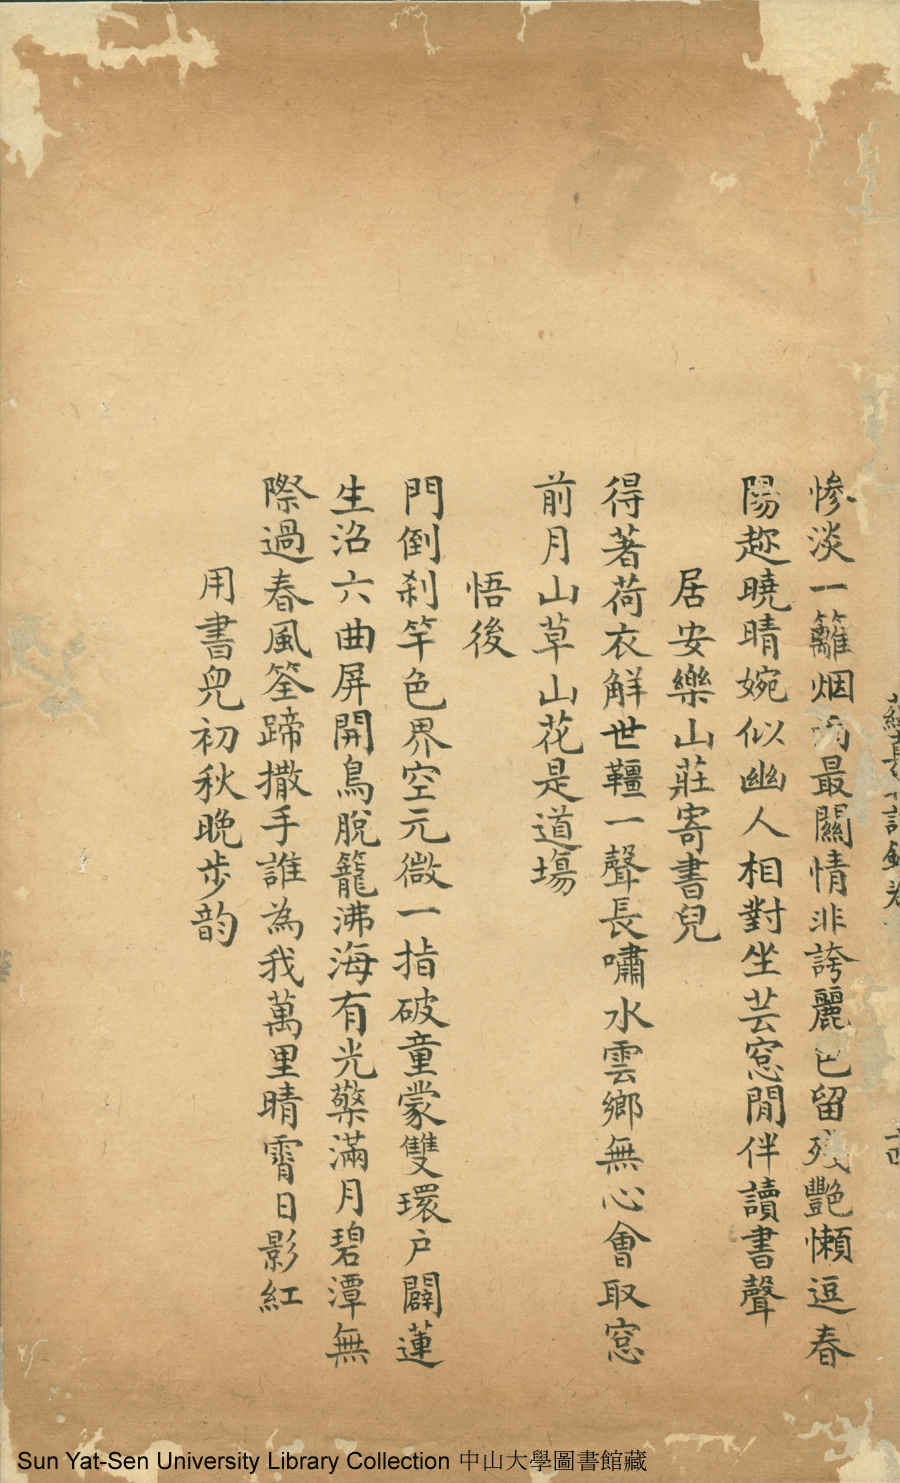 惨淡一籬烟雨最關情非誇麗色留残艷懶逗春
陽趂曉晴婉似幽人相對坐芸窓閒伴讀書聲
居安樂山莊寄書兒
得著荷衣解世韁一聲長嘯水雲鄉無心會取窓
前月山草山花是道場
悟後
門倒刹竿色界空元微一指破童蒙雙環户闢蓮
生沼六曲屏開鳥脫籠沸海有光檠滿月碧潭無
際過春風筌蹄撒手誰為我萬里晴霄日影紅
用書兒初秋晚步韵
Sun Yat-Sen University Library Collection 中山大學圖書館藏